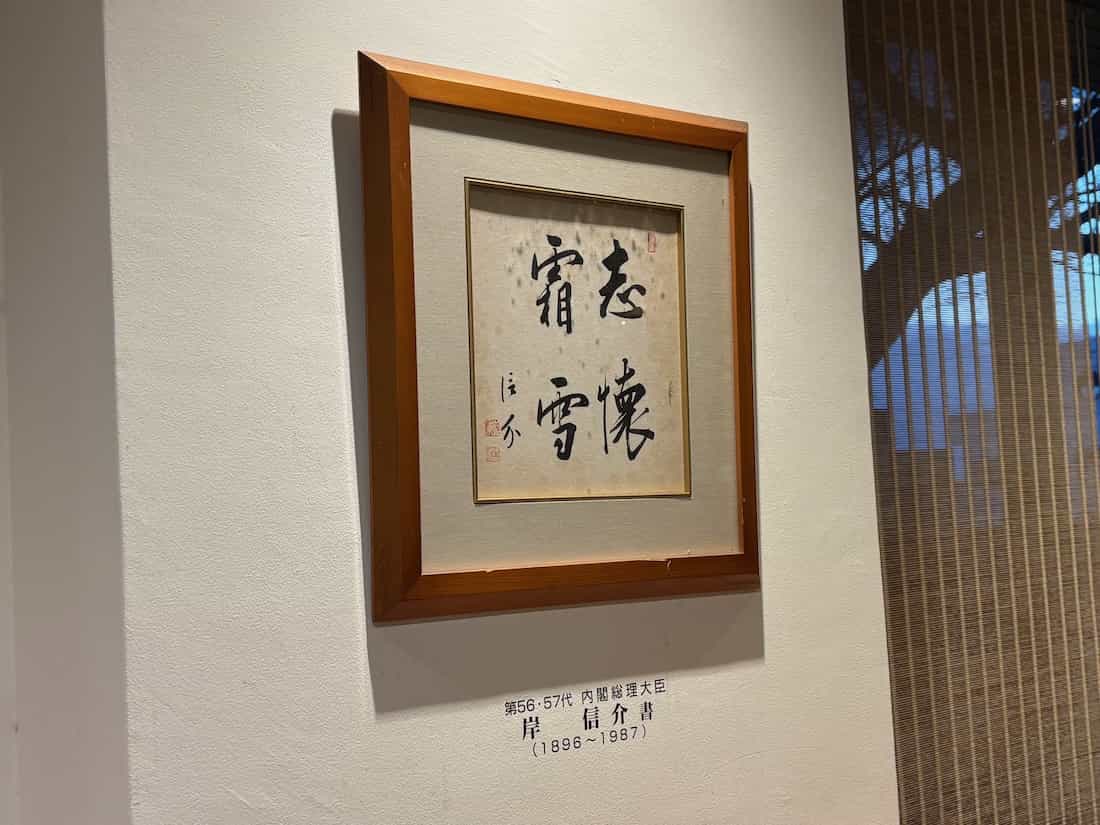 志懐
霜雪
信介
第56·57代 内閣総理大臣
岸 信介書
(1896～1987)